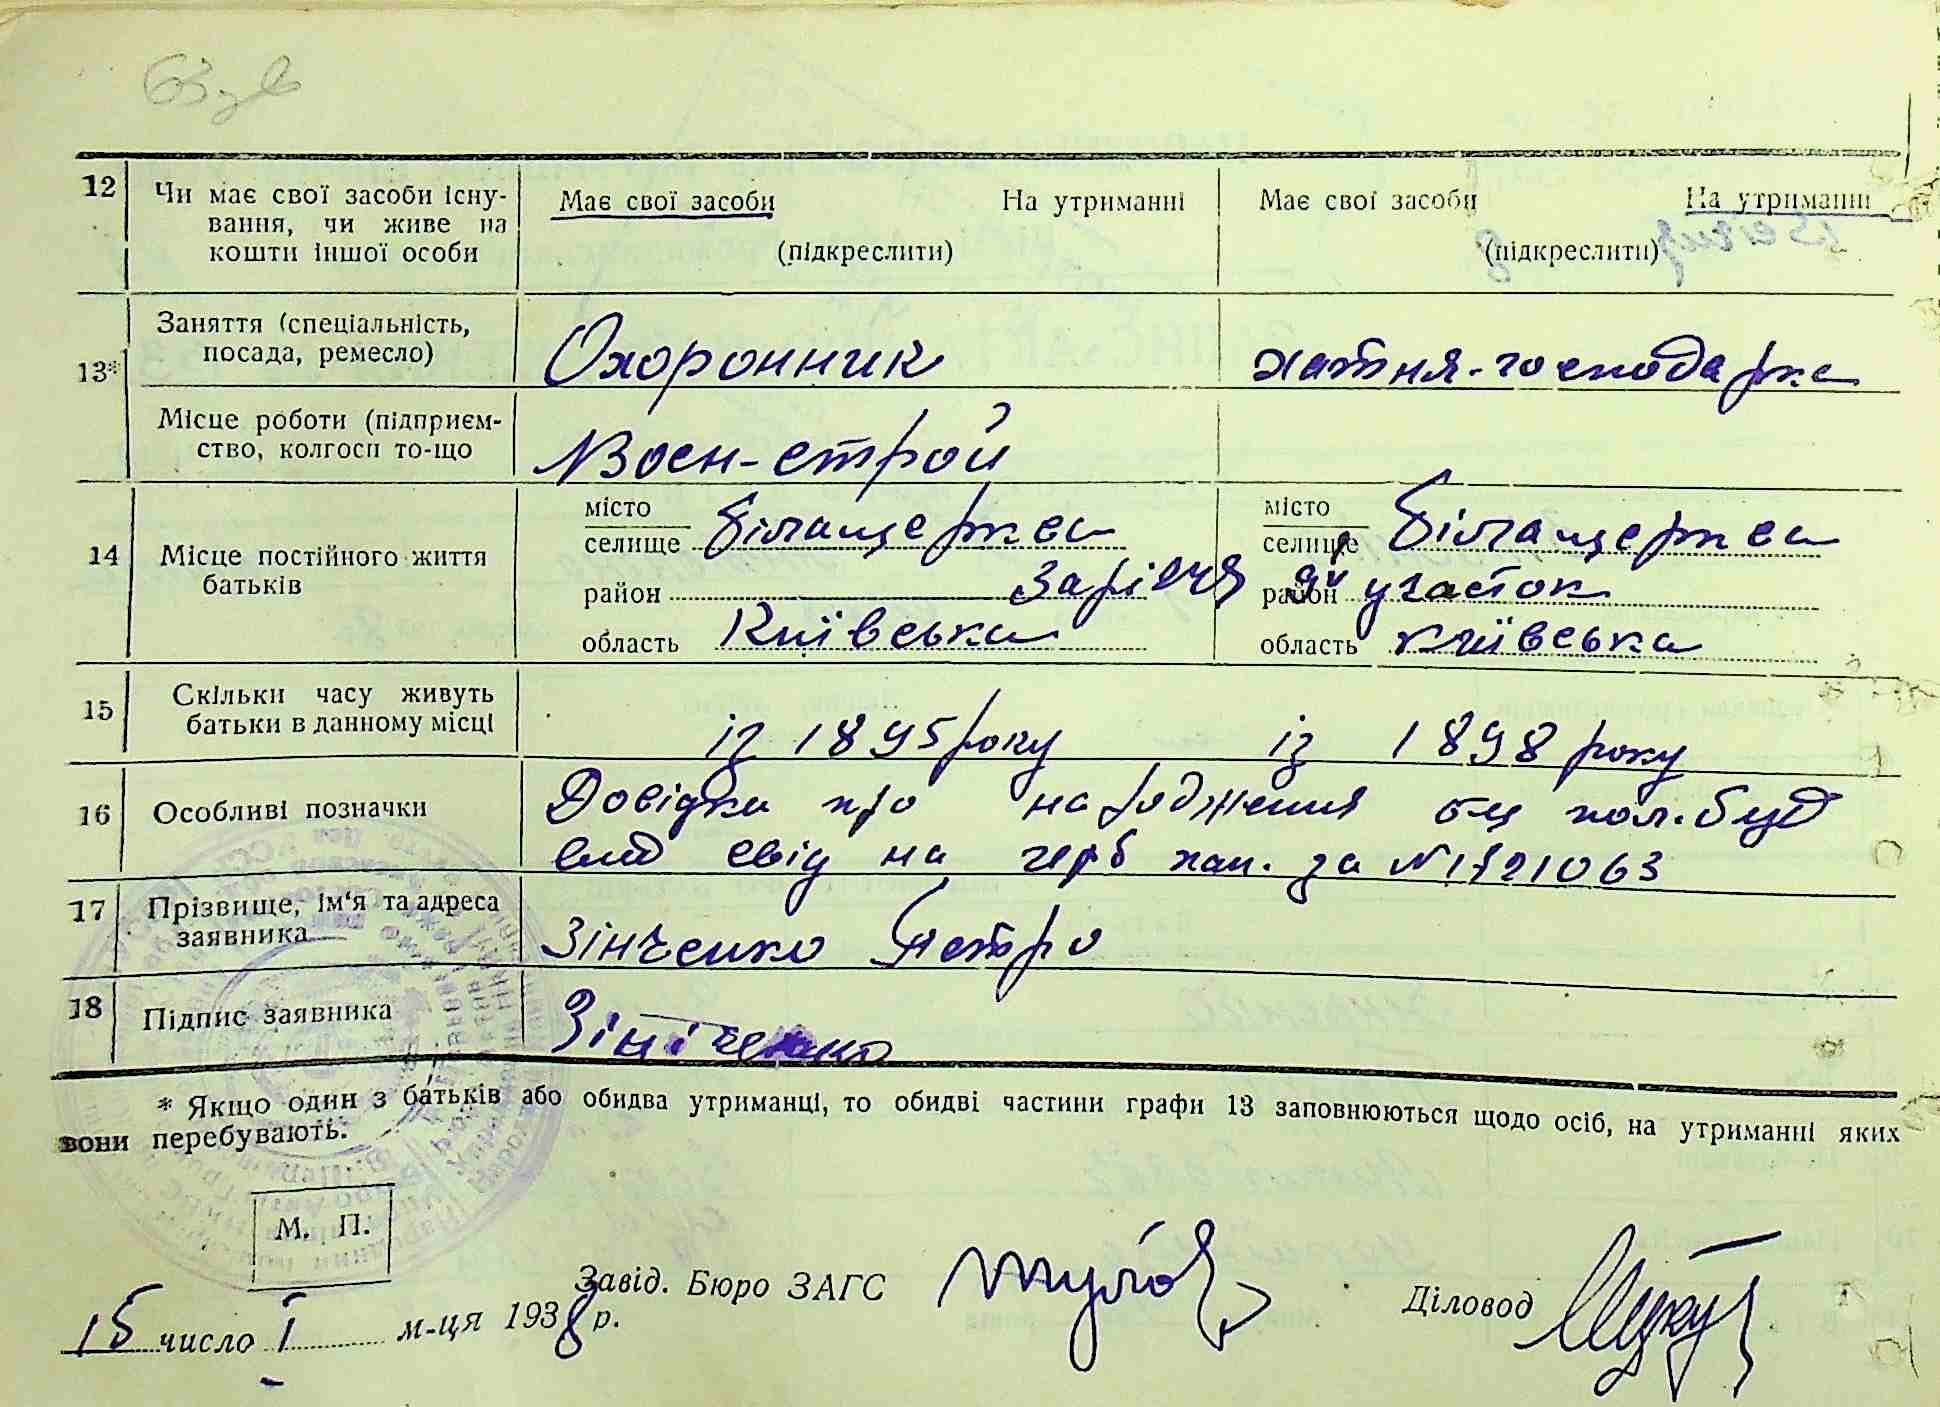 12 Чи має свої засоби існу-
вання, чи живе на
кошти іншої особи
Має свої засоби На утриманні
(підкреслити)
Має свої засоби На утриманні
(підкреслити)
13*
Заняття (спеціальність,
посада, ремесло)
Охоронник
хатня-господарка
Місце роботи (підприєм-
ство, колгосп то-що
Воен-строй
14 Місце постійного життя
батьків
місто
селище Білащерква
район Заріччя
область Київська
місто
селище Білащерква
район участок
область Київська
15 Скільки часу живуть
батьки в данному місці
із 1895 року
із 1898 року
16 Особливі позначки
Довідка про народження
свід на герб пап. за №
17 Прізвище, ім'я та адреса
заявника
Зінченко Петро
18 Підпис заявника
Зінченко
* Якщо один з батьків або обидва утриманці, то обидві частини графи 13 заповнюються щодо осіб, на утриманні яких
вони перебувають.
М. П.
15 число I м-ця 1938 р.
Завід. Бюро ЗАГС
Діловод